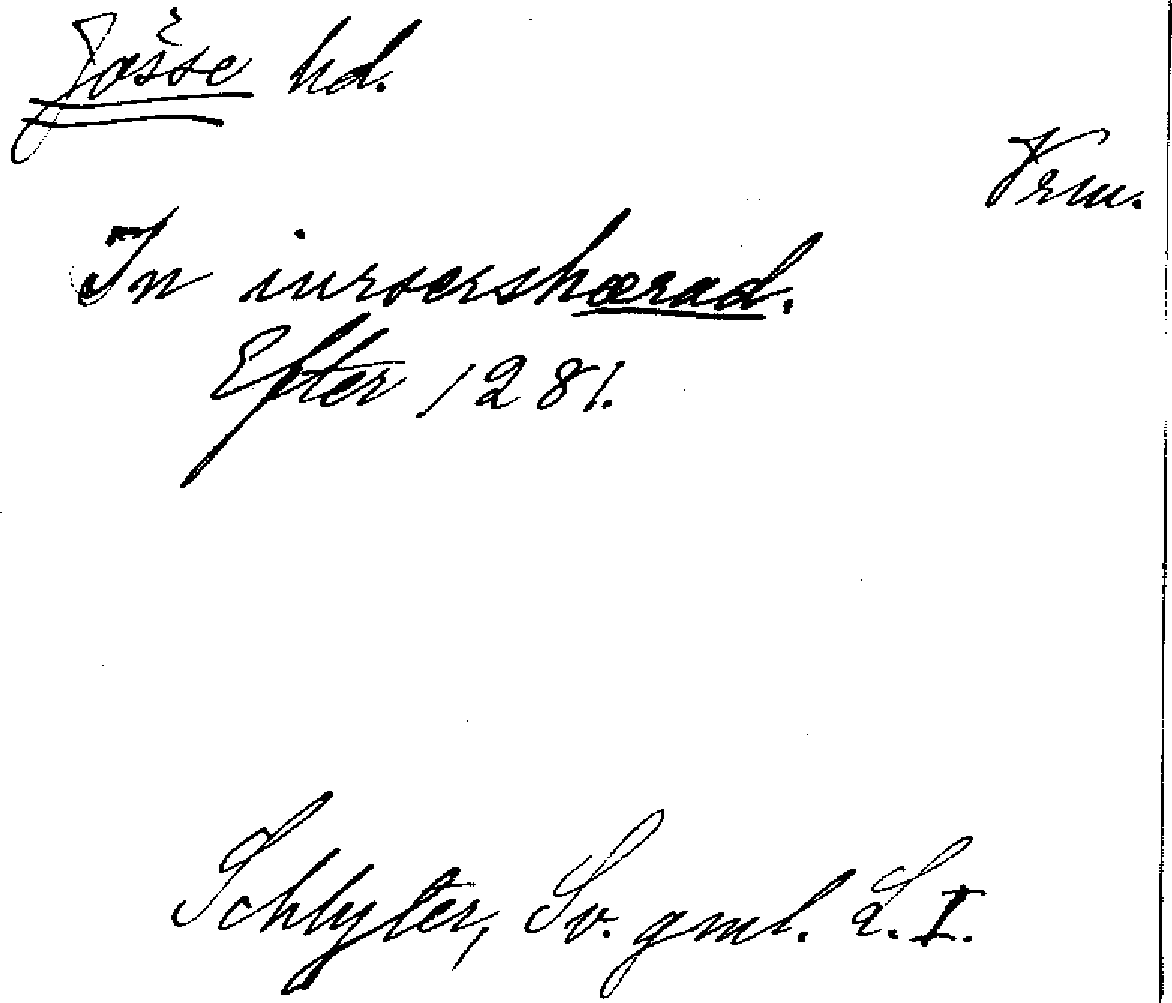 Jösse hd.
Vrm.
In iursershærad.
Efter 1281.
Schlyter, Sv. gml. L. I.